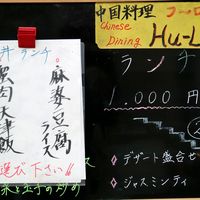 中国料理 フーロ
Chinese
Dining Hu-L
ランチ
1,000円
デザート盛合せ
ジャスミンティ
丼 ランチ
麻婆豆腐
ライス
魚肉天津飯
選び下さい!!
米と玉子の炒め